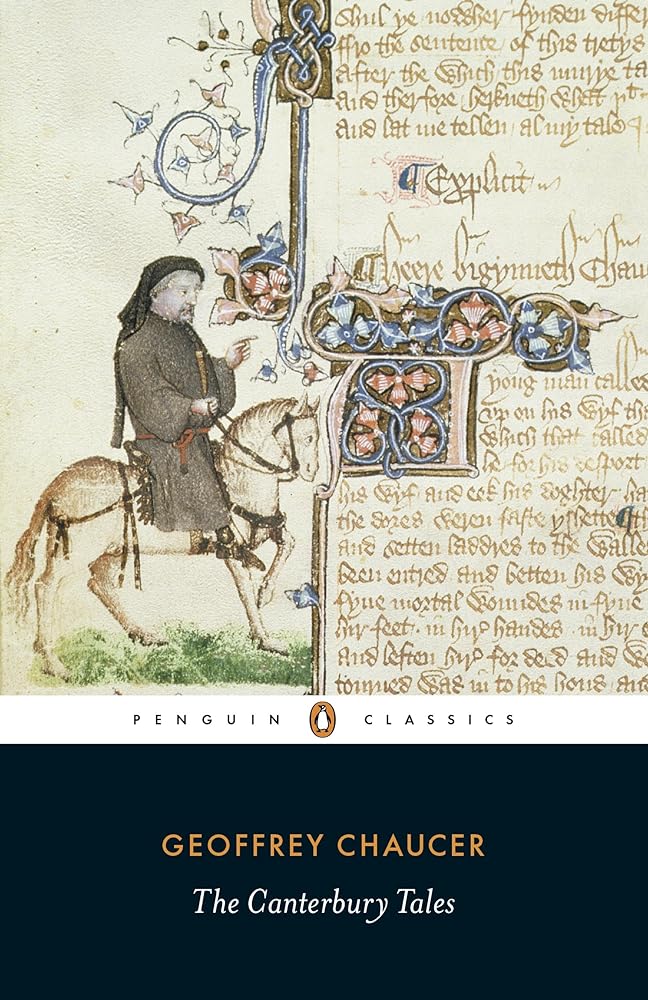 Shul ye nowher fynden differ
ffro the sentence / of this tretys
after the which / this murye ta
And therfore herkneth what
and lat me tellen / al my tale
Explicit
heere bigynneth Chau
yong man called
vp on his wyf
which that called
he for his desport
his wyf / and eek his doghter
the dores weren faste yshette
and setten laddres to the walle
been entred / and betten his wy
fyue mortal woundes in fyue
hir feet · in hir handes · in hir
and leften hir for deed / and
tourned was in to his hous / and
PENGUIN CLASSICS
GEOFFREY CHAUCER
The Canterbury Tales